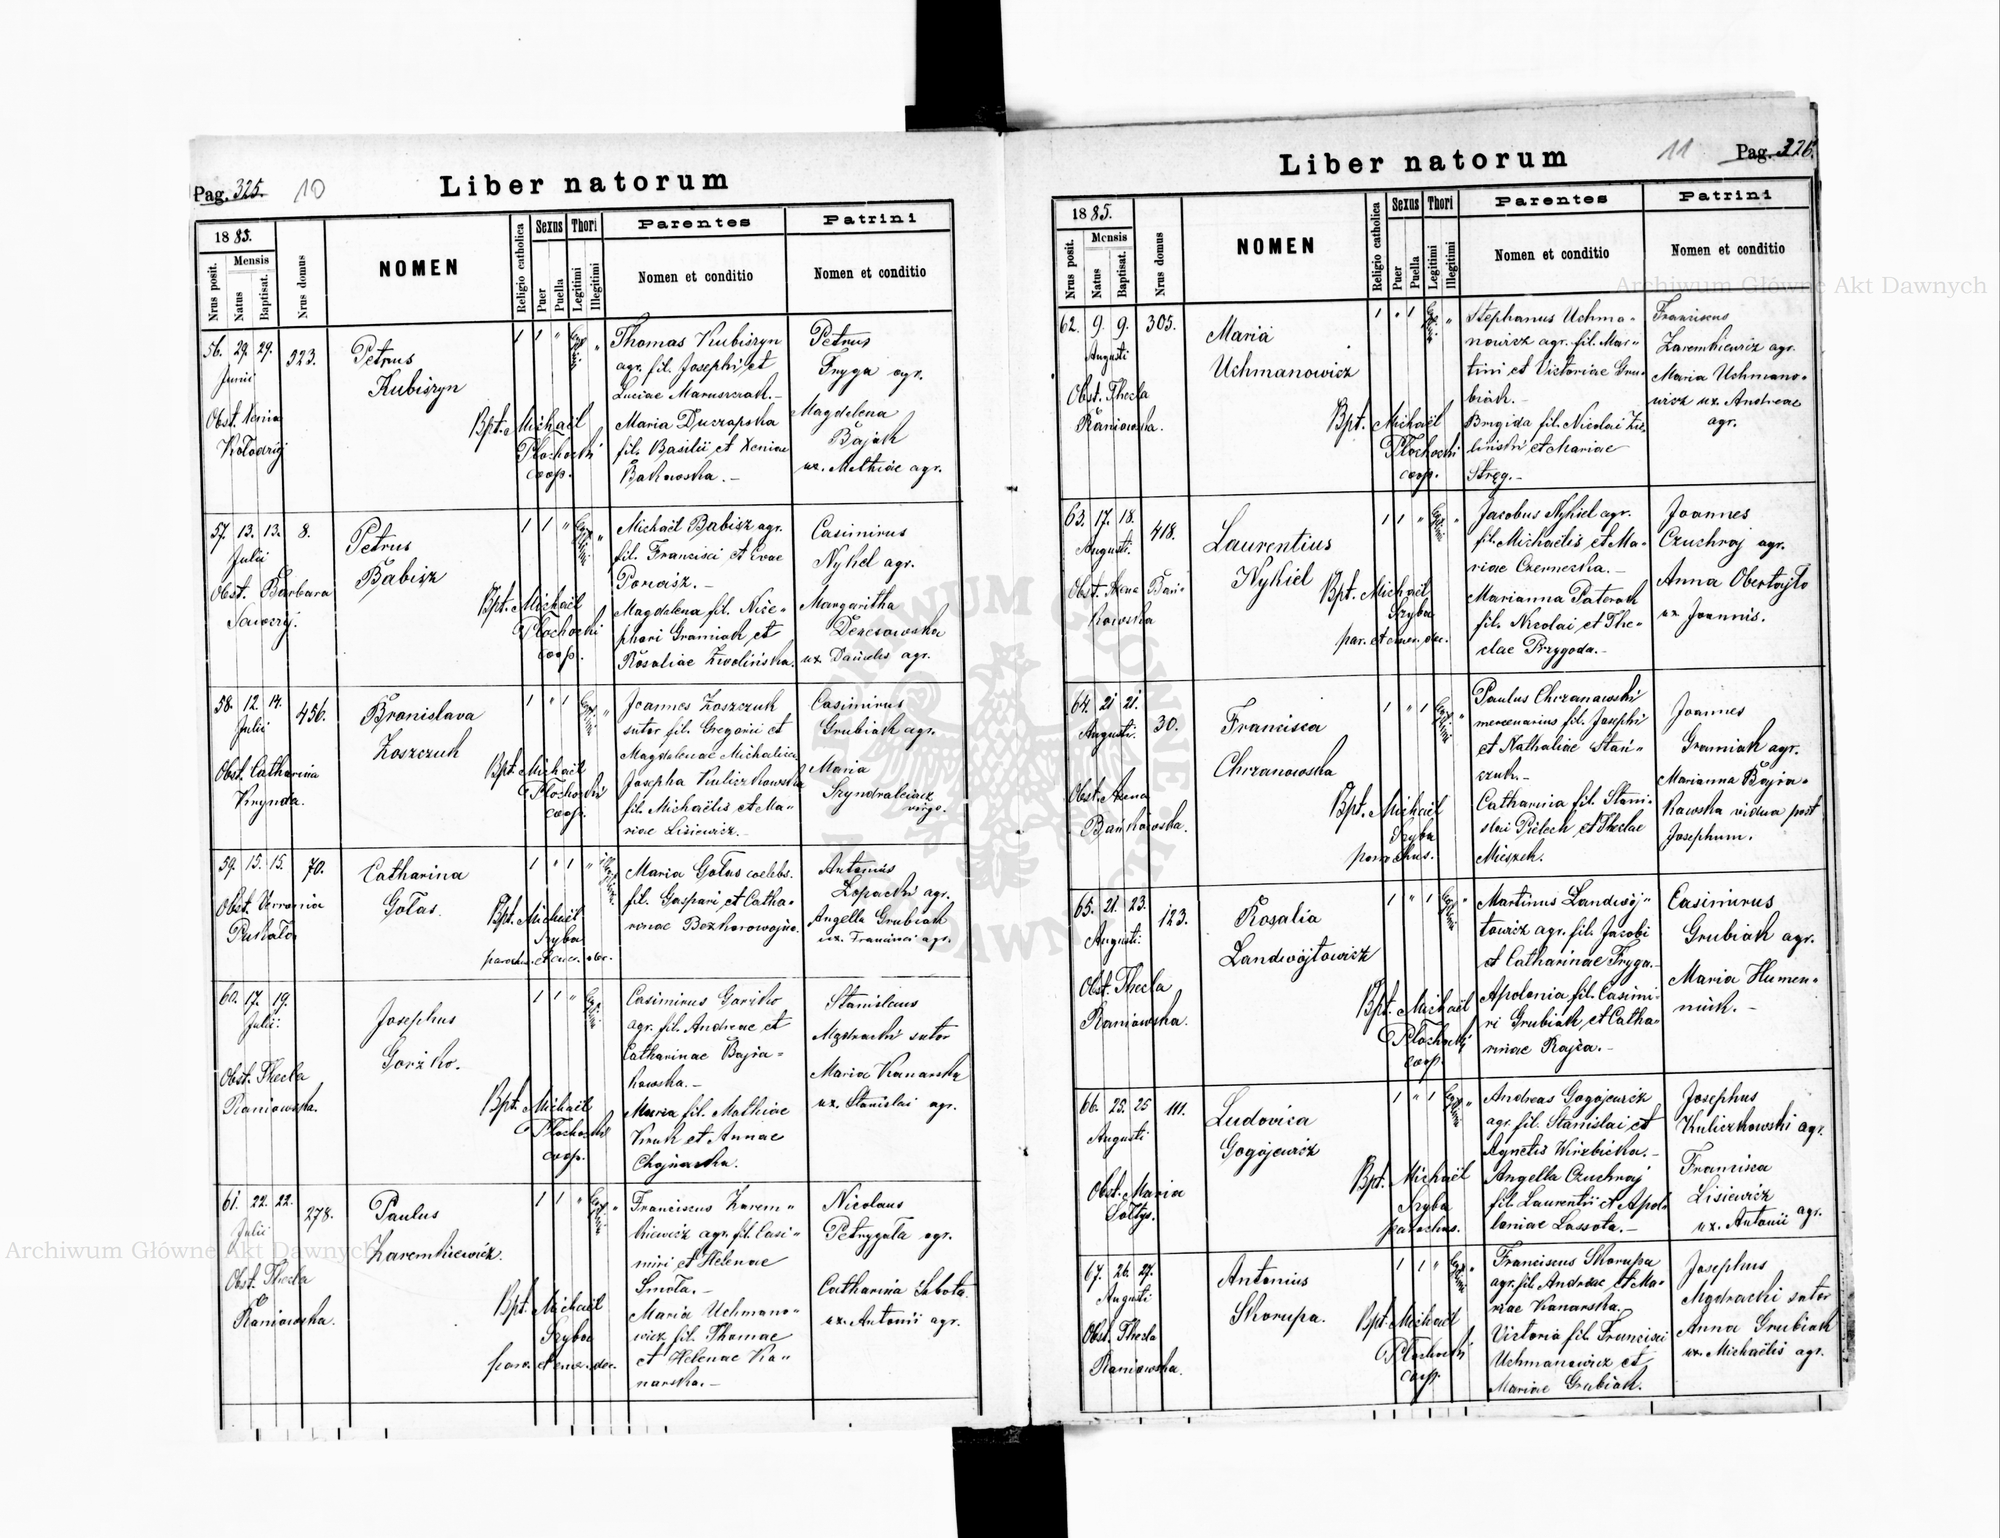 Pag. 325. 10
Liber natorum
1885.
Nrus posit.
Mensis
Natus
Baptisat.
Nrus domus
NOMEN
Religio catholica
Sexus
Puer
Puella
Thori
Legitimi
Illegitimi
Parentes
Nomen et conditio
Patrini
Nomen et conditio
56. 29. 29. 323.
Junii
Obst. Xenia
Kołodrij
Petrus
Kubiszyn
Bpt. Michaël
Płochocki
coop.
Thomas Kubiszyn
agr. fil. Josephi et
Luciae Maruszczak.-
Maria Duczapska
fil. Basilii et Xeniae
Bakowska.-
Petrus
Fryga agr.
Magdelena
Bajak
ux. Mathiae agr.
57. 13. 13. 8.
Julii
Obst. Barbara
Petrus
Babisz
Bpt. Michaël
Płochocki
coop.
Michaël Babisz agr.
fil. Francisci et Evae
Ponaisz.-
Magdalena fil. Nice-
phori Gramiak et
Rosaliae Zwolińska.
Casimirus
Nykel agr.
Margaritha
Derczowska
ux. Danielis agr.
58. 12. 14. 456.
Julii
Obst. Catharina
Krynda.
Bronislava
Zoszczuk
Bpt. Michaël
Płochocki
coop.
Joannes Zoszczuk
sutor fil. Gregorii et
Magdalenae Michalica
Josepha Kuliczkowska
fil. Michaëlis et Ma-
riae Lisiewicz.-
Casimirus
Grubiak agr.
Maria
Szyndralewicz
virgo.
59. 15. 15. 70.
Obst. Veronica
Puskało
Catharina
Gołas.
Bpt. Michaël
Szyba
parochus et emer. dec.
Maria Gołas coelebs.
fil. Gaspari et Catha-
rinae Bezkorowajna.
Antonius
Łopacki agr.
Angella Grubiak
ux. Francisci agr.
60. 17. 19.
Julii
Obst. Thecla
Raniowska.
Josephus
Gorzko.
Bpt. Michaël
Płochocki
coop.
Casimirus Gorzko
agr. fil. Andreae et
Catharinae Bajra-
kowska.-
Maria fil. Mathiae
Kruk et Annae
Chojnacka.
Stanislaus
Mądracki sutor
Maria Kanarska
ux. Stanislai agr.
61. 22. 22. 278.
Julii
Obst. Thecla
Raniowska.
Paulus
Zaremkiewicz.
Bpt. Michaël
Szyba
paro. et emer. dec.
Franciscus Zarem-
kiewicz agr. fil. Casi-
miri et Helenae
Smoła.-
Maria Uchmano-
wicz fil. Thomae
et Helenae Ka-
narska.-
Nicolaus
Petrygała agr.
Catharina Sobota
ux. Antonii agr.
Liber natorum
11 Pag. 326.
1885.
Nrus posit.
Mensis
Natus
Baptisat.
Nrus domus
NOMEN
Religio catholica
Sexus
Puer
Puella
Thori
Legitimi
Illegitimi
Parentes
Nomen et conditio
Patrini
Nomen et conditio
62. 9. 9. 305.
Augusti
Obst. Thecla
Raniowska.
Maria
Uchmanowicz
Bpt. Michaël
Płochocki
coop.
Stephanus Uchma-
nowicz agr. fil. Mar-
tini et Victoriae Gru-
biak.-
Brigida fil. Nicolai Zie-
linski et Mariae
Stręg.-
Franciscus
Zaremkiewicz agr.
Maria Uchmano-
wicz ux. Andreae
agr.
63. 17. 18. 418.
Augusti.
Obst. Xena Bań-
kowska
Laurentius
Nykiel
Bpt. Michaël
Szyba
par. et emer. dec.
Jacobus Nykiel agr.
fil. Michaëlis et Ma-
riae Czerneczka.-
Marianna Paterak
fil. Nicolai et The-
clae Przygoda.-
Joannes
Czuchraj agr.
Anna Obertajło
ux. Joannis.
64. 21. 21. 30.
Augusti.
Obst. Xena
Bańkowska.
Francisca
Chrzanowska
Bpt. Michaël
Szyba
parochus.
Paulus Chrzanowski
mercenarius fil. Josephi
et Nathaliae Stań-
czuk.-
Catharina fil. Stani-
slai Pielech et Theclae
Mieszek.
Joannes
Gramiak agr.
Marianna Bajra-
kowska vidua post
Josephum.
65. 21. 23. 123.
Augusti.
Obst. Thecla
Raniowska.
Rosalia
Landwójtowicz
Bpt. Michaël
Płochocki
coop.
Martinus Landwój-
towicz agr. fil. Jacobi
et Catharinae Fryga.-
Apolonia fil. Casimi-
ri Grubiak et Catha-
rinae Rajca.-
Casimirus
Grubiak agr.
Maria Humen-
niuk.-
66. 25. 25 111.
Augusti
Obst. Maria
Sołtys.
Ludovica
Gogojewicz
Bpt. Michaël
Szyba
parochus.
Andreas Gogojewicz
agr. fil. Stanislai et
Agnetis Wirzbicka.-
Angella Czuchraj
fil. Laurentii et Apol-
loniae Lassota.-
Josephus
Kuliczkowski agr.
Francisca
Lisiewicz
ux. Antonii agr.
67. 26. 27.
Augusti
Obst. Thecla
Raniowska.
Antonius
Skorupa.
Bpt. Michaël
Płochocki
coop.
Franciscus Skorupa
agr. fil. Andreae et Ma-
riae Kanarska.
Victoria fil. Francisci
Uchmanowicz et
Mariae Grubiak.
Josephus
Mądracki sutor
Anna Grubiak
ux. Michaëlis agr.
Archiwum Główne Akt Dawnych
Archiwum Główne Akt Dawnych